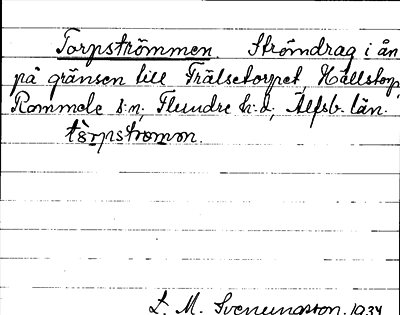 Torpströmmen. Strömdrag i ån
på gränsen till Trälsetorpet, Hällstorp,
Rommele s:n, Flundre h:d, Älfsb. län.
tòrpstrømon.
L. M. Svenungsson. 1934